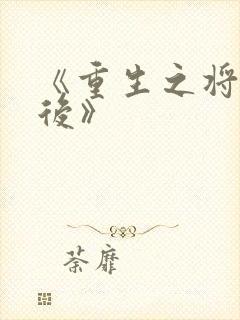 《重生之将
後》
荼靡